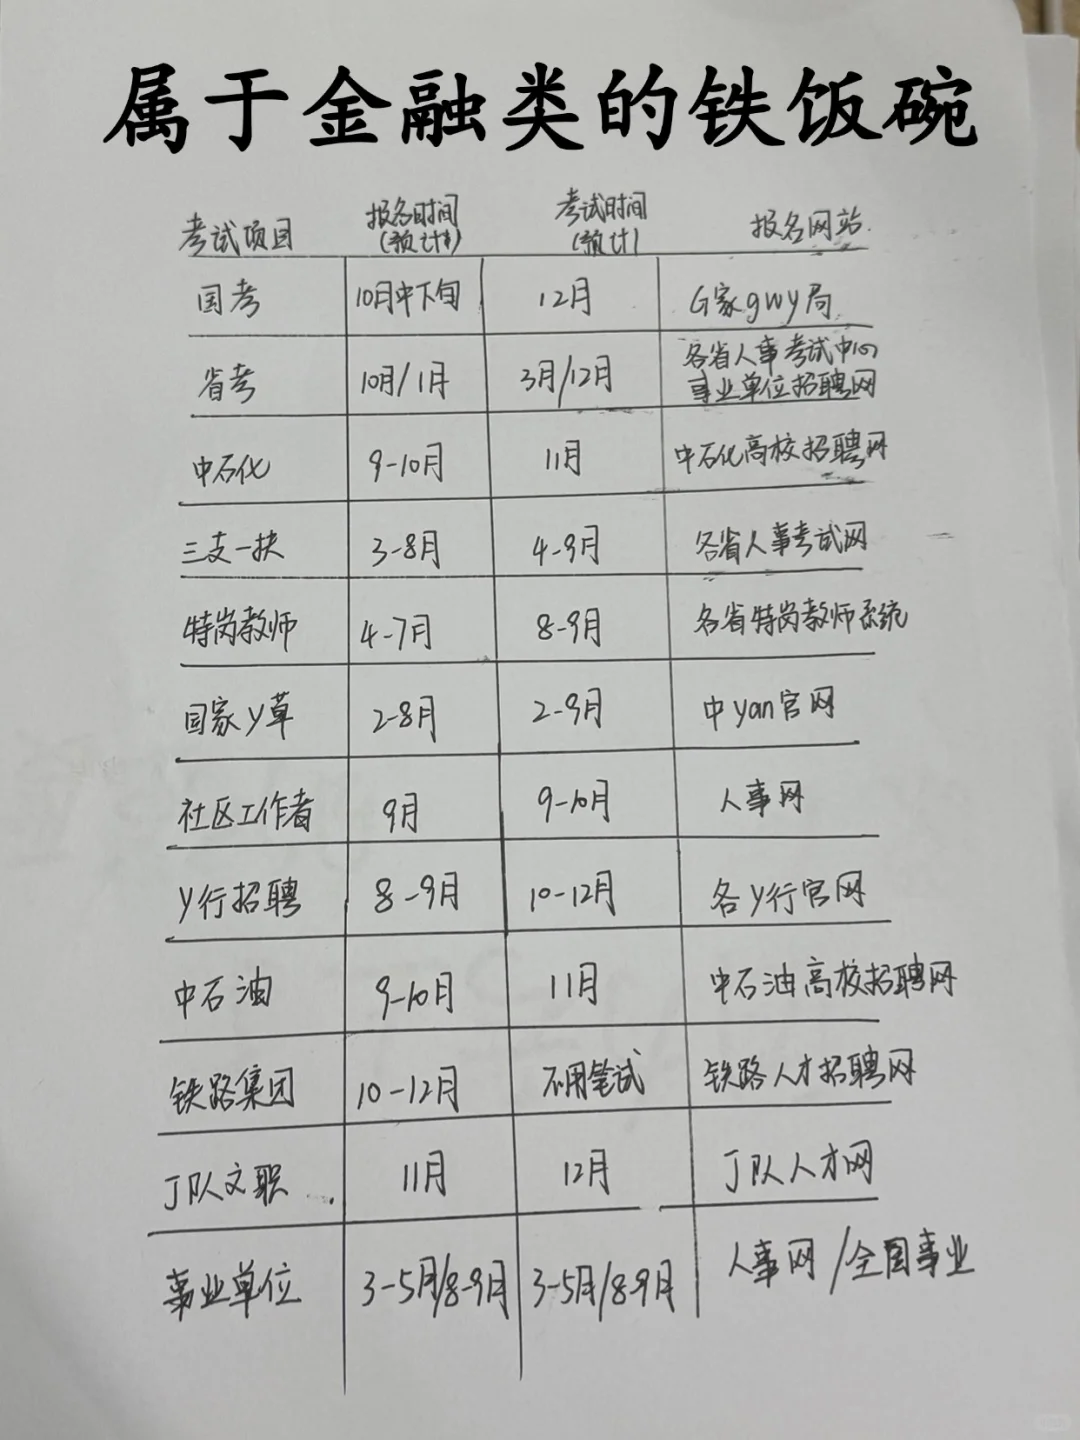 属于金融类的铁饭碗
考试项目 报名时间 考试时间 报名网站
(预计) (预计)
国考 10月中下旬 12月 G家gwy局
省考 10月/1月 3月/12月 各省人事考试中心
事业单位招聘网
中石化 9-10月 11月 中石化高校招聘网
三支一扶 3-8月 4-9月 各省人事考试网
特岗教师 4-7月 8-9月 各省特岗教师系统
国家y草 2-8月 2-9月 中yan官网
社区工作者 9月 9-10月 人事网
y行招聘 8-9月 10-12月 各y行官网
中石油 9-10月 11月 中石油高校招聘网
铁路集团 10-12月 不用笔试 铁路人才招聘网
J队文职 11月 12月 J队人才网
事业单位 3-5月/8-9月 3-5月/8-9月 人事网/全国事业